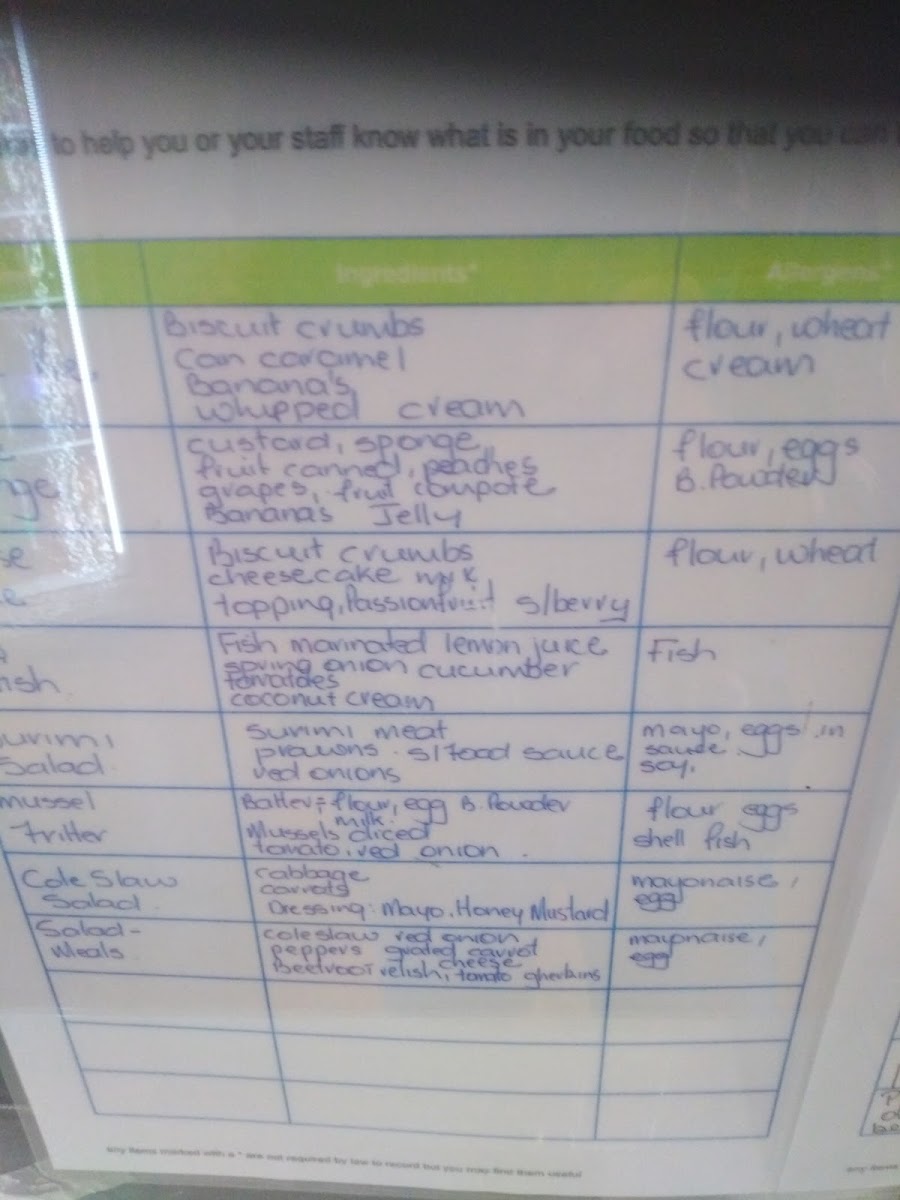 to help you or your staff know what is in your food so that you can
Ingredients* Allergens*
Biscuit crumbs
Can caramel
Banana's
whipped cream
flour, wheat
cream
nge
custard, sponge
fruit canned, peaches
grapes, fruit compote
Bananas Jelly
flour, eggs
B. Powder
se
e
Biscuit crumbs
cheesecake
topping, Passionfruit s/berry
flour, wheat
ish
Fish marinated lemon juice
spring onion cucumber
tomatoes
coconut cream
Fish
urimi
Salad
surimi meat
prawns. s/food sauce
red onions
mayo, eggs in
sauce
soy.
mussel
fritter
Batter; flour, egg B. Powder
milk.
Mussels diced
tomato, red onion.
flour eggs
shell fish
Cole Slaw
Salad
cabbage
carrots
Dressing: Mayo. Honey Mustard
mayonaise,
egg
Salad-
Meals
coleslaw red onion
peppers grated carrot
cheese
Beetroot relish, tomato gherkins
mayonaise,
egg
any items marked with a * are not required by law to record but you may find them useful
any items